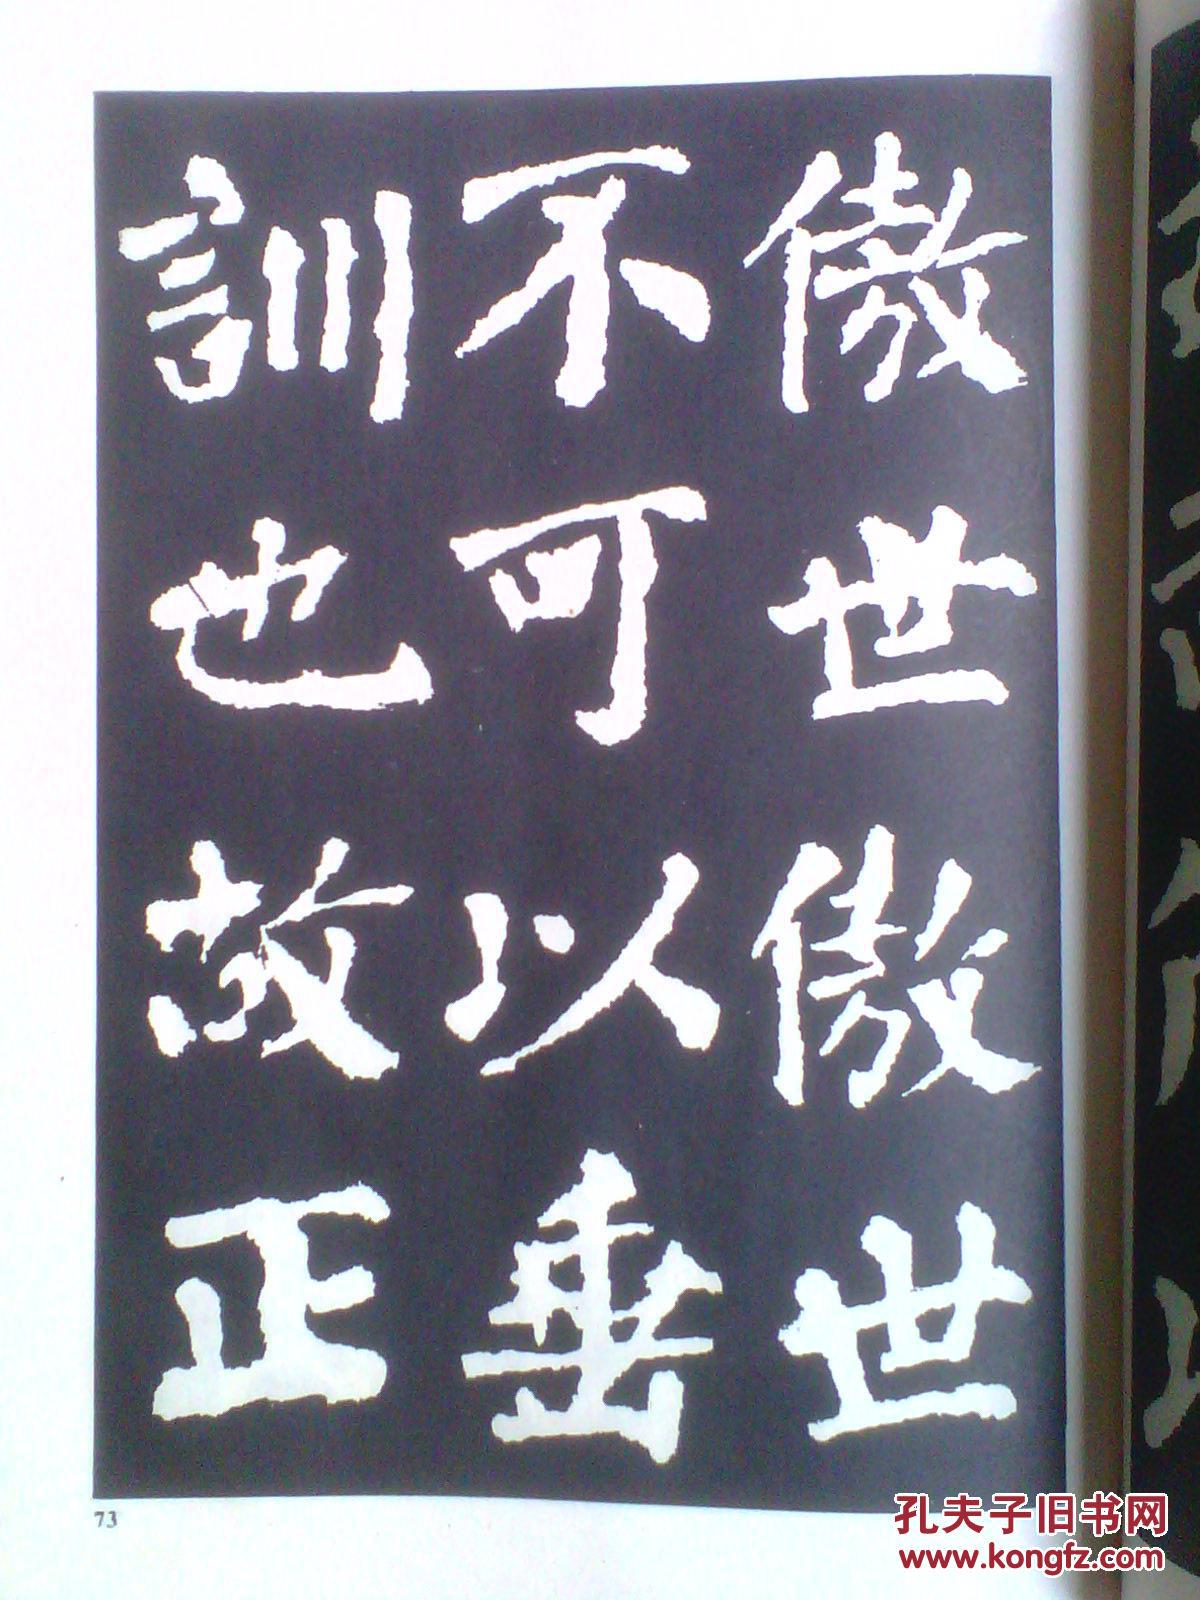 傲世傲世
不可以垂
訓也故正
73
孔夫子旧书网
www.kongfz.com